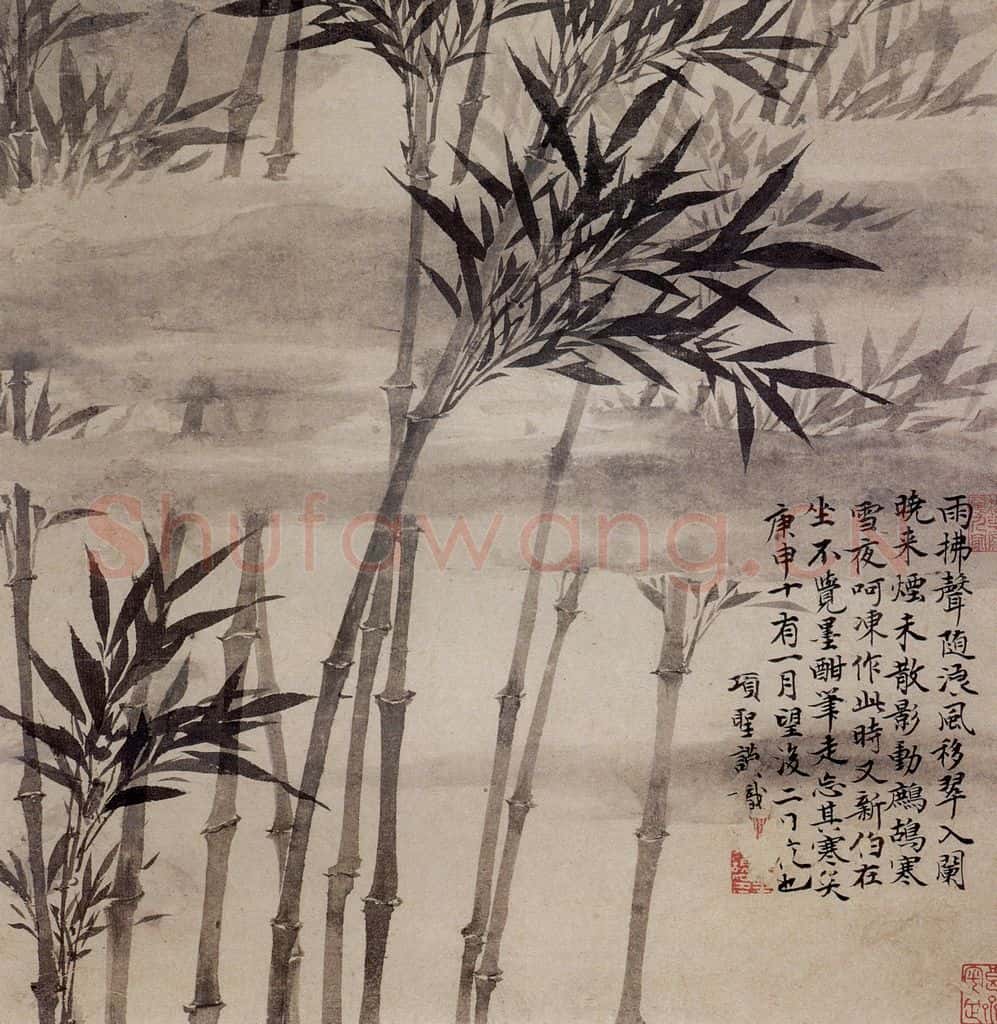 雨拂聲隨浪風移翠入闌
曉来煙未散影動鷓鴣寒
雪夜呵凍作此時又新伯在
坐不覺墨酣筆走忘其寒矣
庚申十有一月望後二日
項聖謨識
Shufawang.CN